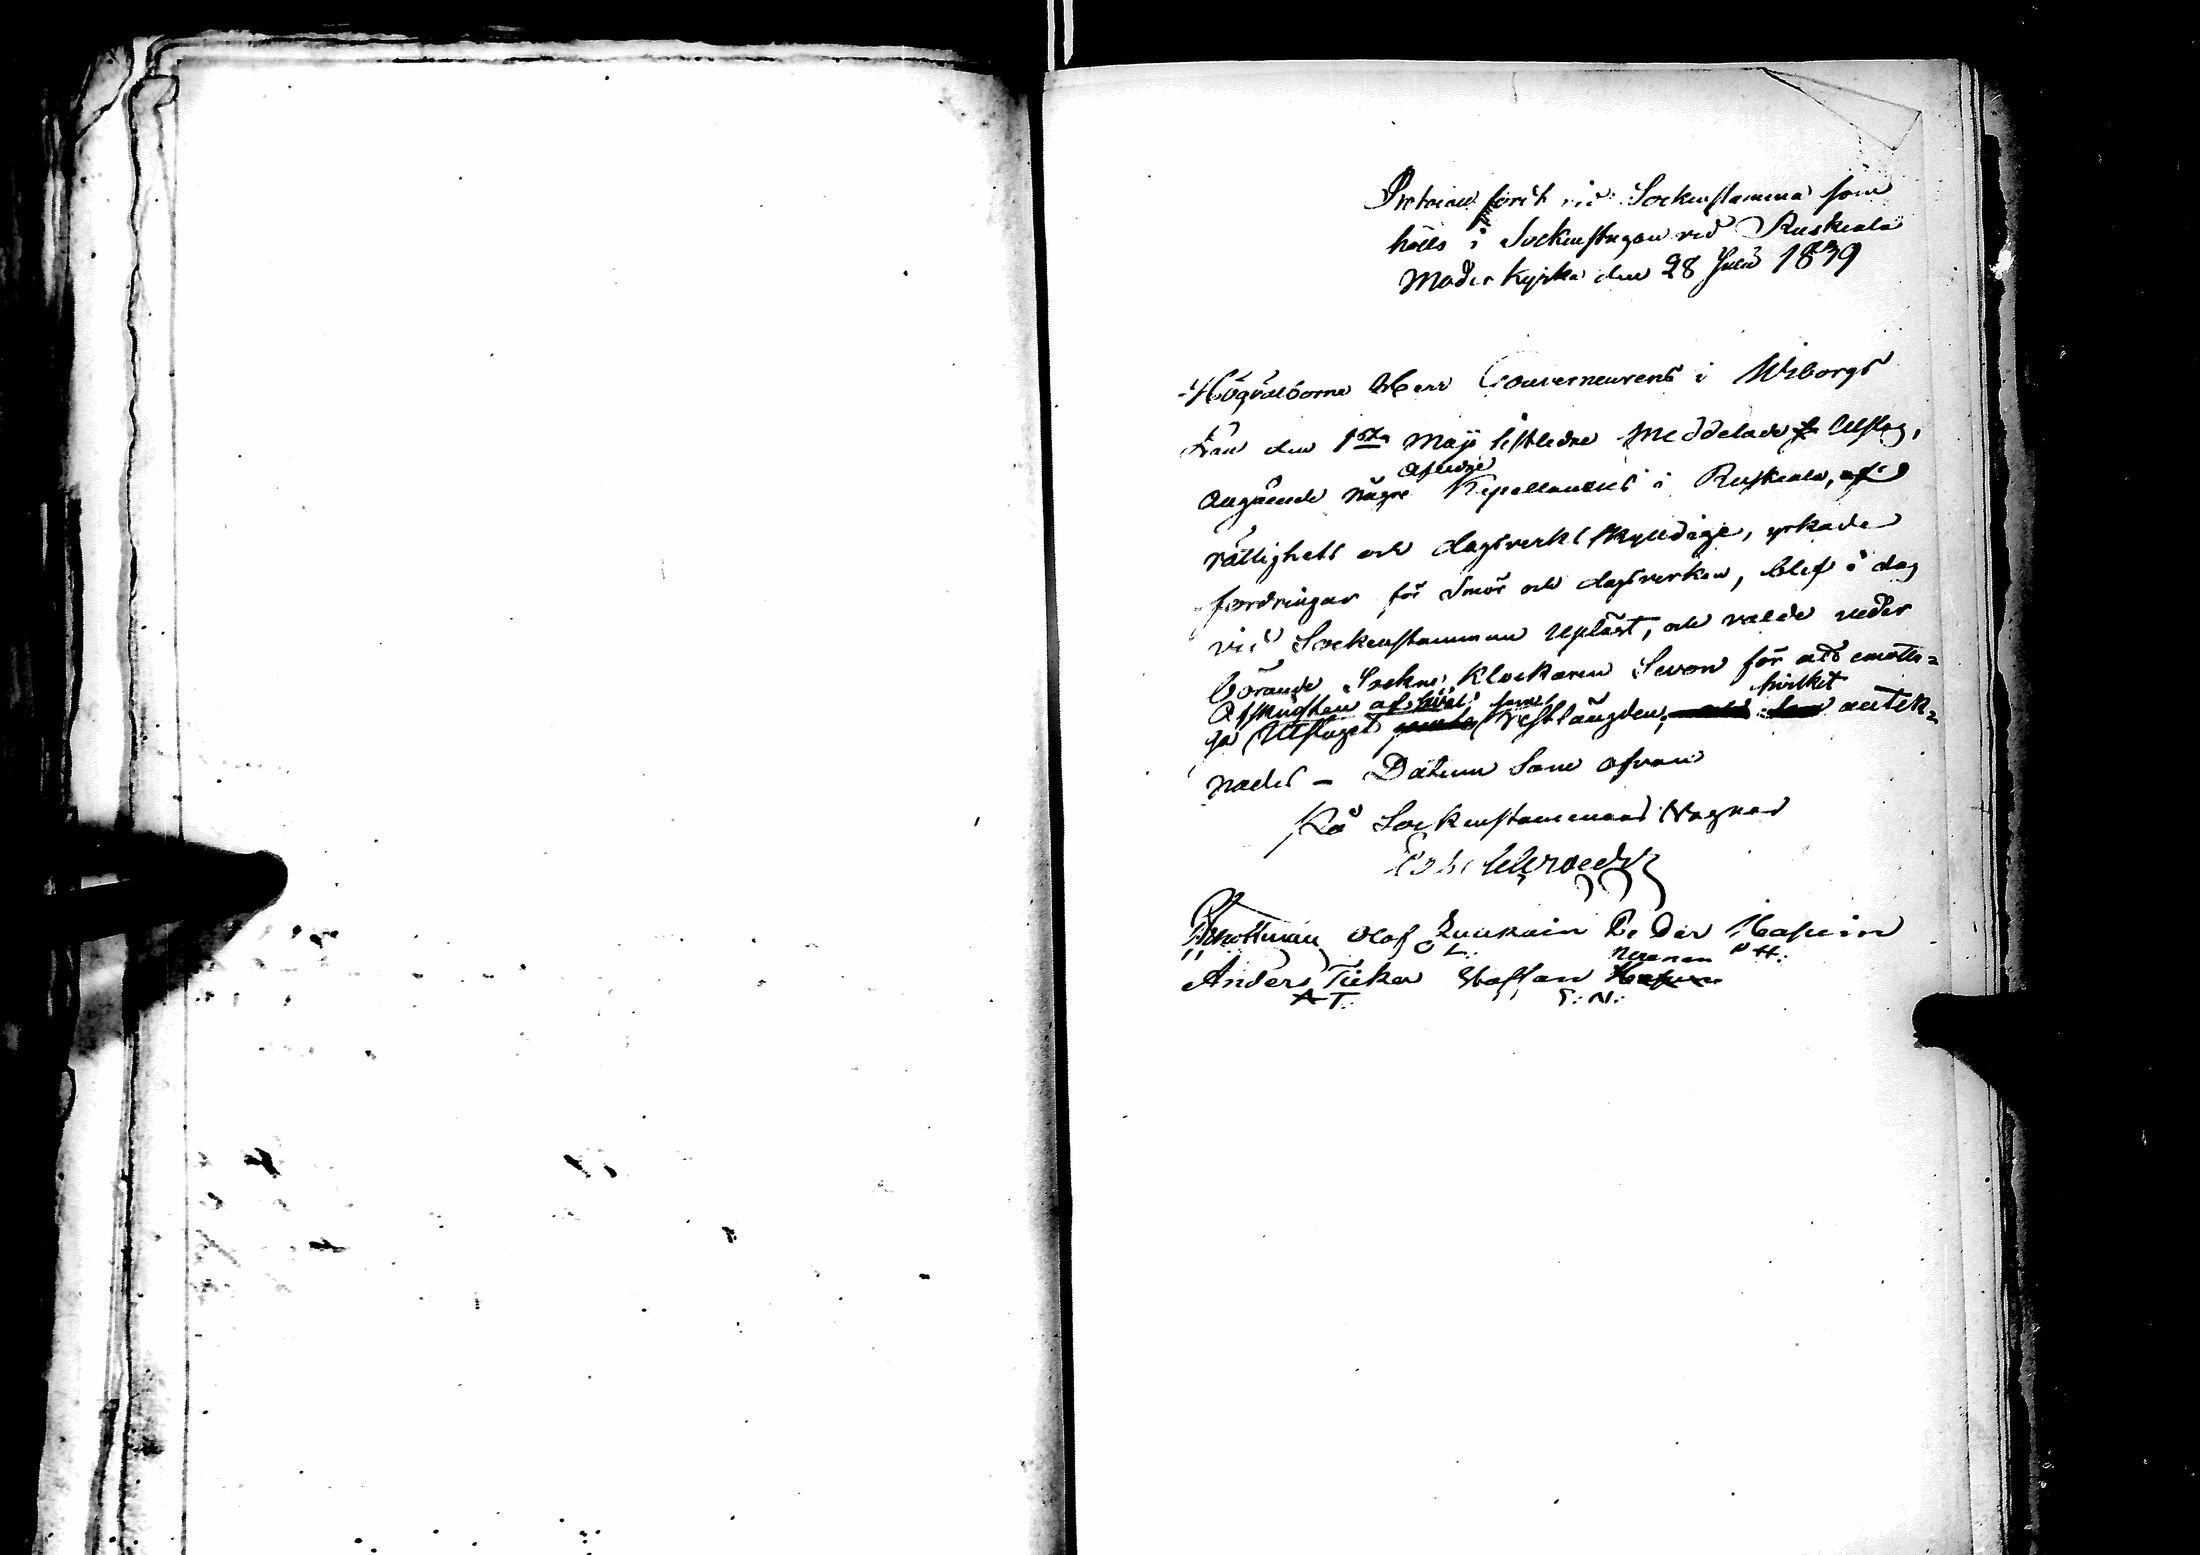 Protocoll fördt vid Sockenstamma som
hölls i Sockenstugan vid Ruskiala
Moder Kyrka den 28 Julii 1839
Högvälborne Herr Gouverneurens i Wiborgs
Län den 1sta Maji sistledne meddelade Utslag,
angående någre Afledne Kapellanens i Ruskiala, af
rättighets och dagsverks skyldige, yrkade
fordringar för Smör och dagsverken, blef i dag
vid Sockenstamman Upläst, och valde veder
börande Sockne Klockaren Sevon för att emotta=
ga Afskriften af såväl Utslaget som Restlängden, hvilket antek=
nades – Datum Som ofvan
På Sockenstammans Vägnar
Olof Peder
O L: P H:
Anders Tiikka Staffan Nuanen
A T: S: N: